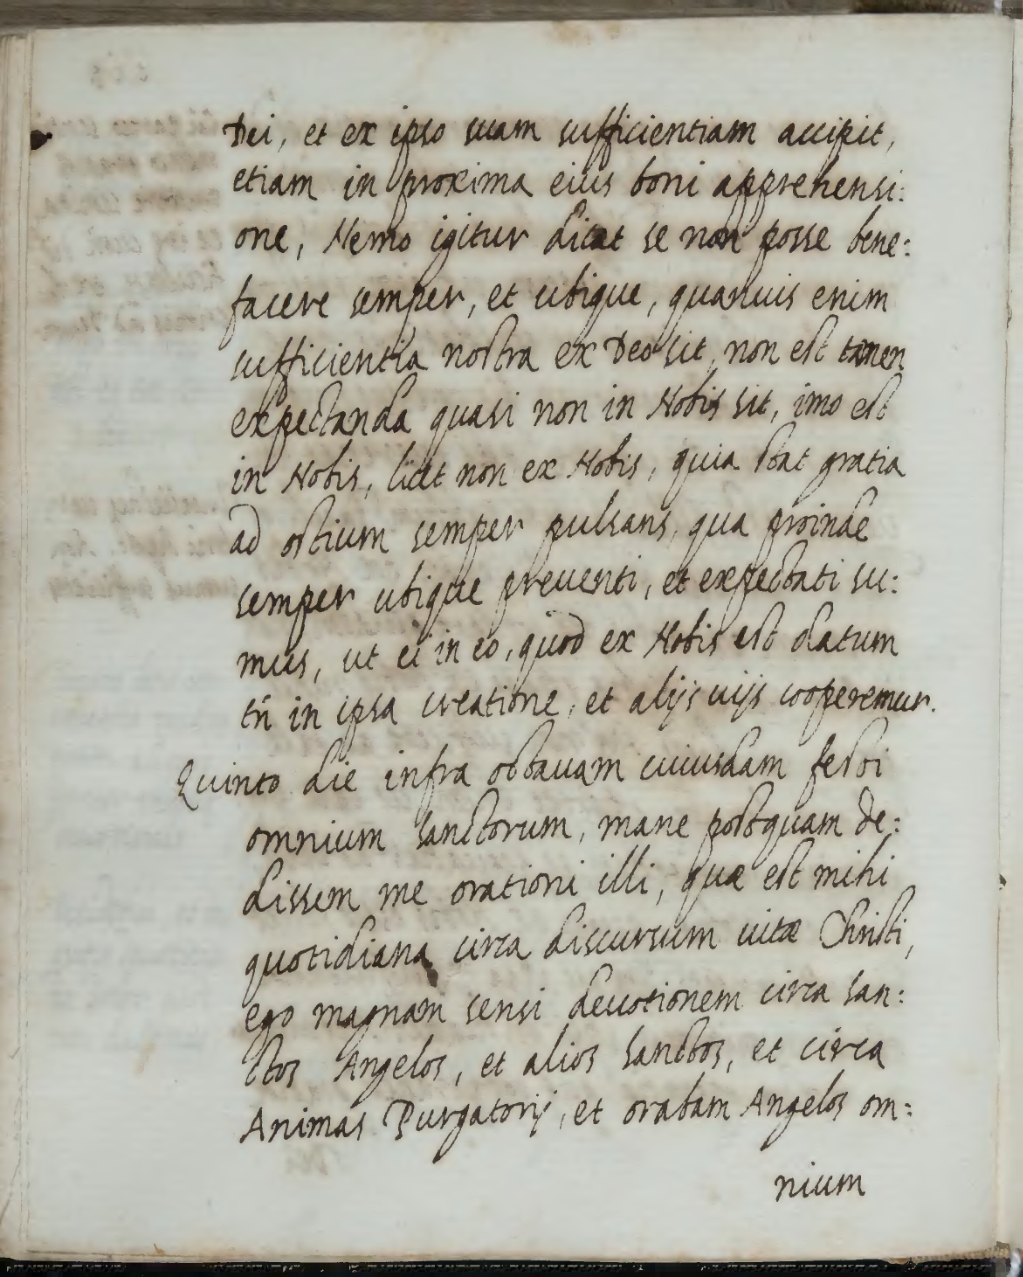 Dei, et ex ipso suam sufficientiam accipit,
etiam in proxima eius boni apprehensi:
one, Nemo igitur dicat se non posse bene:
facere semper, et ubique, quamuis enim
sufficientia nostra ex Deo sit, non est tamen
expectanda quasi non in Nobis sit, imo est
in Nobis, licet non ex Nobis, quia stat gratia
ad ostium semper pulsans, qua proinde
semper ubique preuenti, et expectati su:
mus, ut ei in eo, quod ex Nobis est datum
tñ in ipsa creatione, et alijs uijs cooperemur.
Quinto die infra octauam cuiusdam festi
omnium sanctorum, mane postquam de:
dissem me orationi illi, quæ est mihi
quotidiana circa discursum uitæ Christi,
ego magnam sensi deuotionem circa san:
ctos Angelos, et alios sanctos, et circa
Animas Purgatorij, et orabam Angelos om:
nium